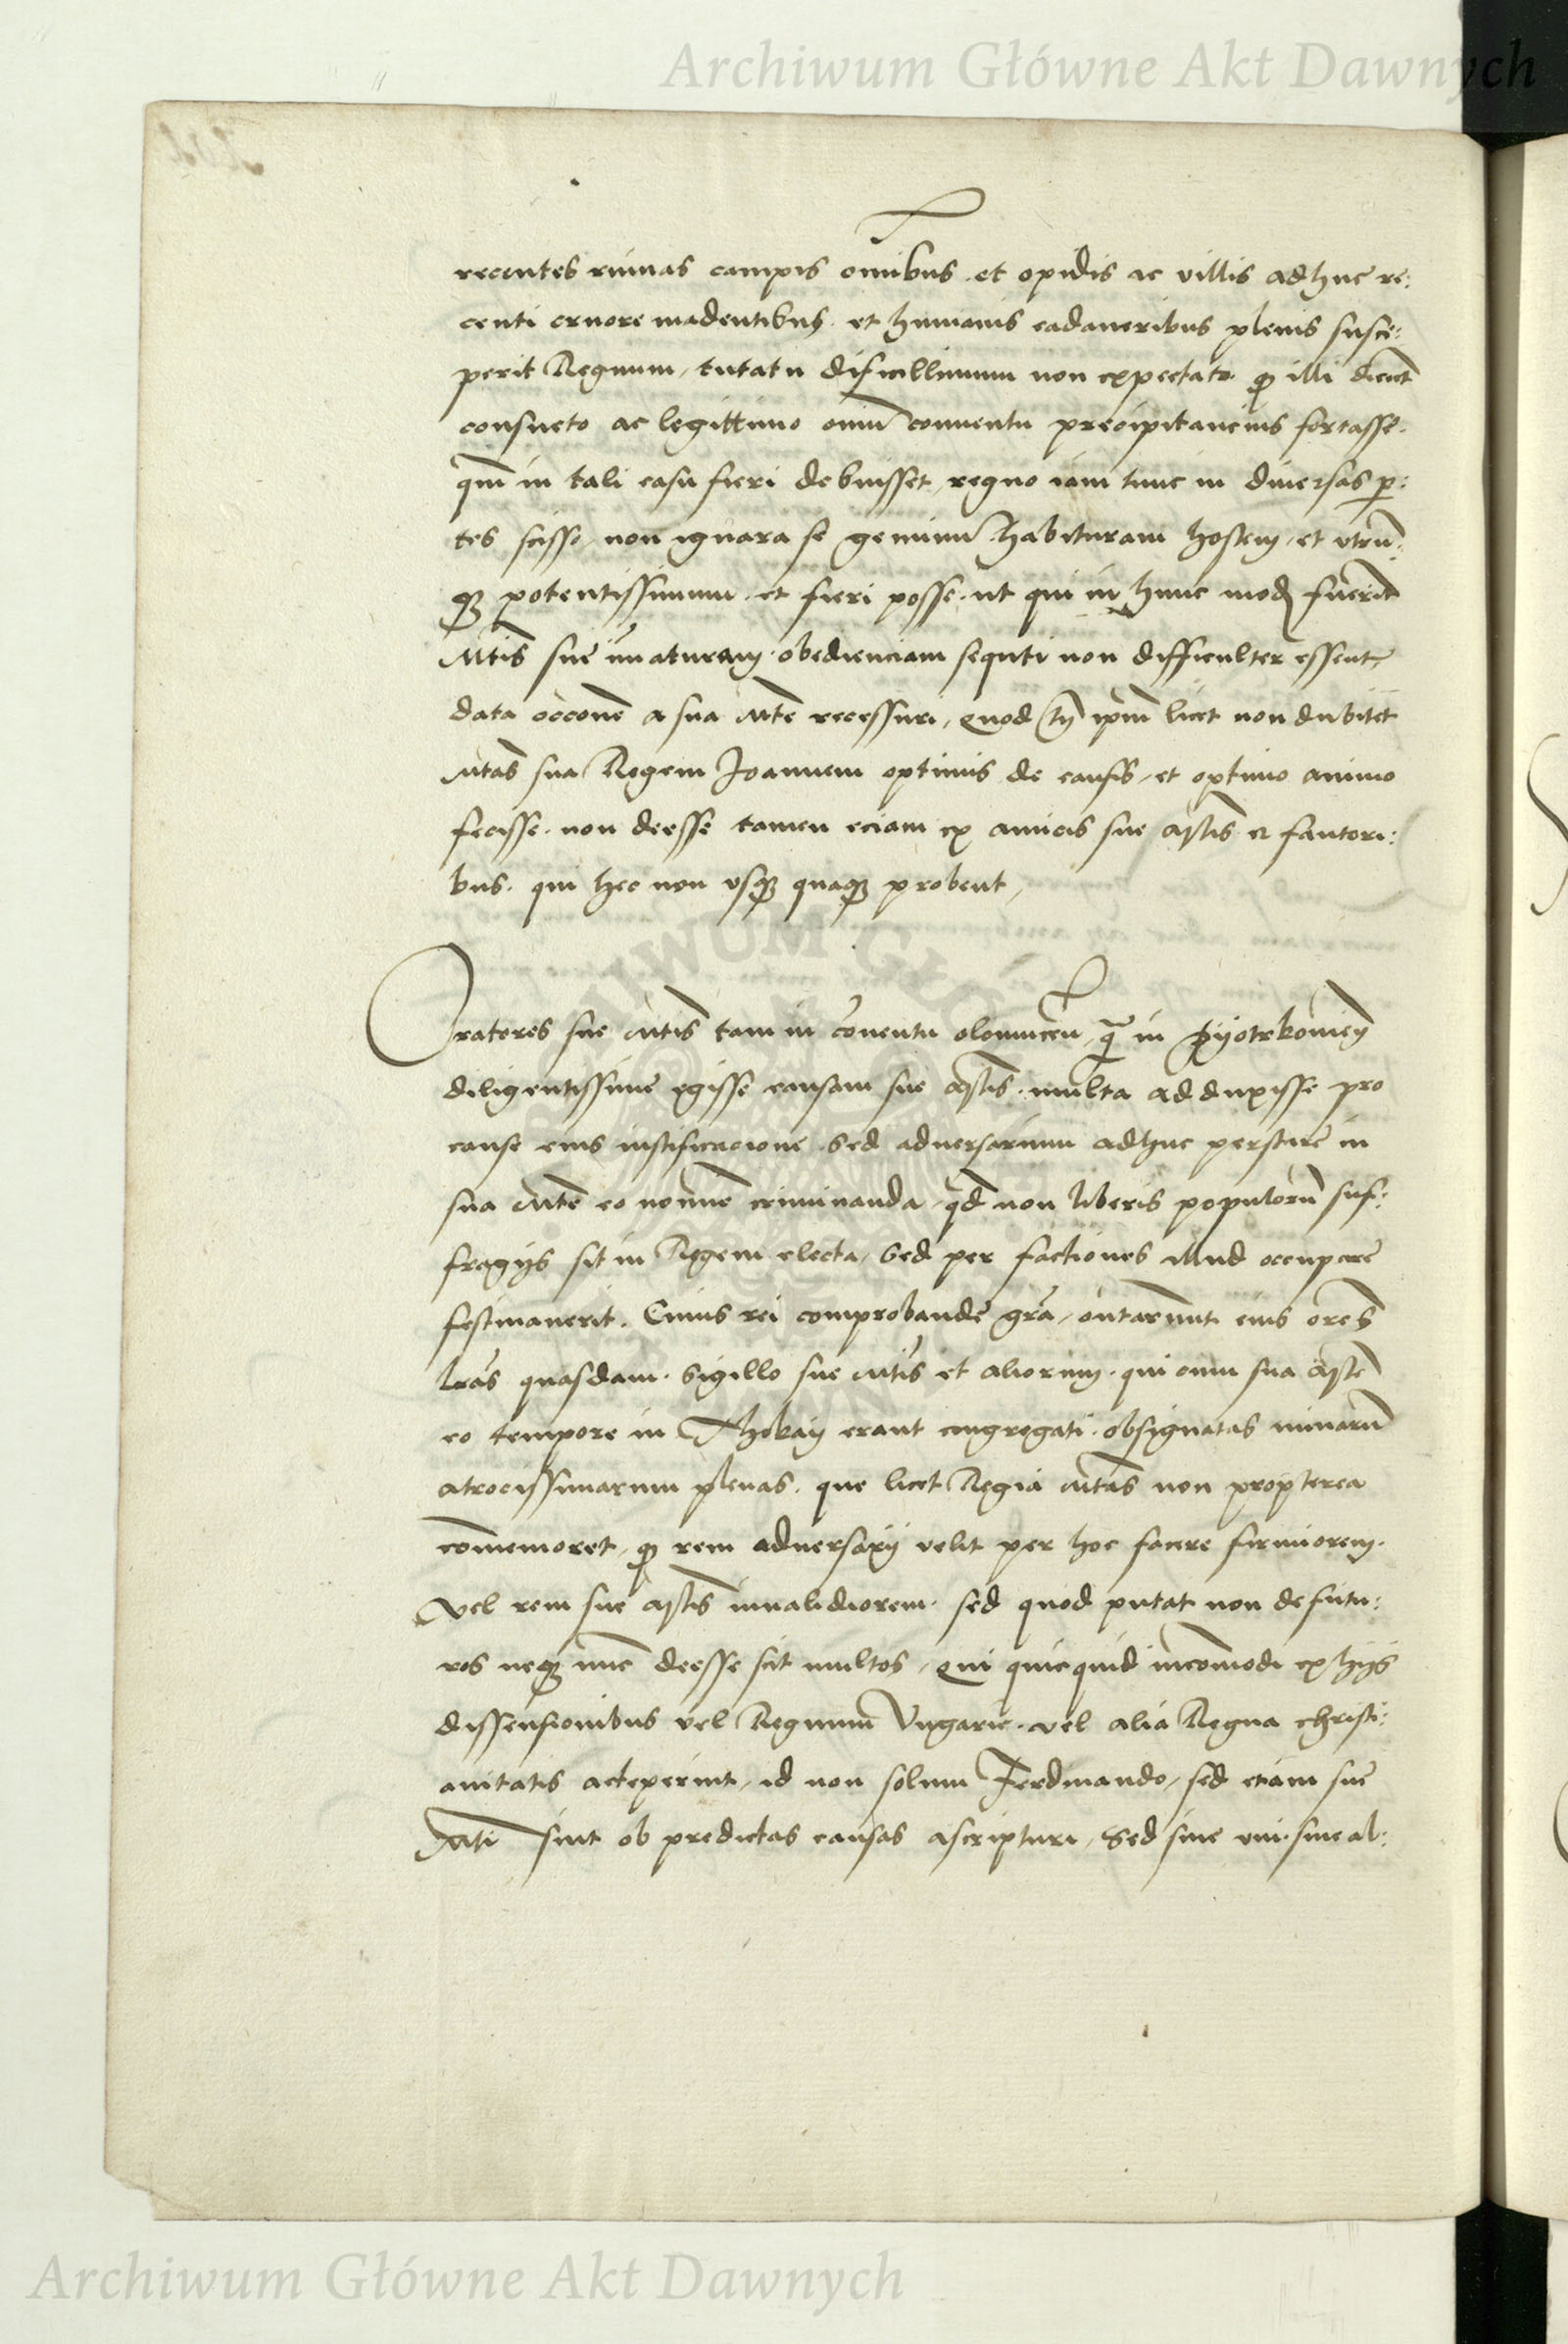 Archiwum Główne Akt Dawnych
recentes ruinas campis omibus et opidis ac villis adhuc re:
centi cruore madentibus et humanis cadaveribus plenis susce:
perit Regnum, tutatu dificillimum non expectato qp illi dicunt
consueto ac legittimo omium conventu precipitancius fortasse
qm in tali casu fieri debuisset, regno iam tunc in diversas p:
tes scisso, non ignara se geminum habituram hostem et utrum:
q potentissimum et fieri posse ut qui in hunc mod fuerint
Mtis sue obedienciam sequti non difficulter essent,
data occone a sua Mte recessuri, quod tn ipm licet non dubitet
Mtas sua Regem Joannem optimis de causis, et optimo animo
fecisse non deesse tamen eciam ex amicis sue Mstis et fautori:
bus qui hec non usq quaq probent,
Oratores sue Mtis tam in conventu olomucen, q in Pyotrkovien
diligentissime egisse causam sue Mstis multa adduxisse pro
cause eius iustificacione Sed adversarium adhuc perstare in
sua Mte eo nomine criminanda, qd non liberis populorum suf:
fragijs sit in Regem electa, Sed per factiones illud occupare
festinaverit. Cuius rei comprobande gra, ontarunt eius ores
lras quasdam Sigillo sue Mtis et aliorum qui cum sua Mste
eo tempore in Thokay erant congregati obsignatas minarum
atrocissimarum plenas que licet Regia Mtas non propterea
commemoret, qp rem adversarij velit per hoc facere firmiorem
Vel rem sue Mstis invalidiorem sed quod putat non defutu:
ros neq nunc deesse scit multos, qui quicquid incommodi ex hijs
dissensionibus vel Regnum Vngarie vel alia Regna christi:
anitatis acceperint, id non solum Ferdinando, sed etiam sue
Mti sint ob predictas causas ascripturi, Sed sive uni sive al:
Archiwum Główne Akt Dawnych